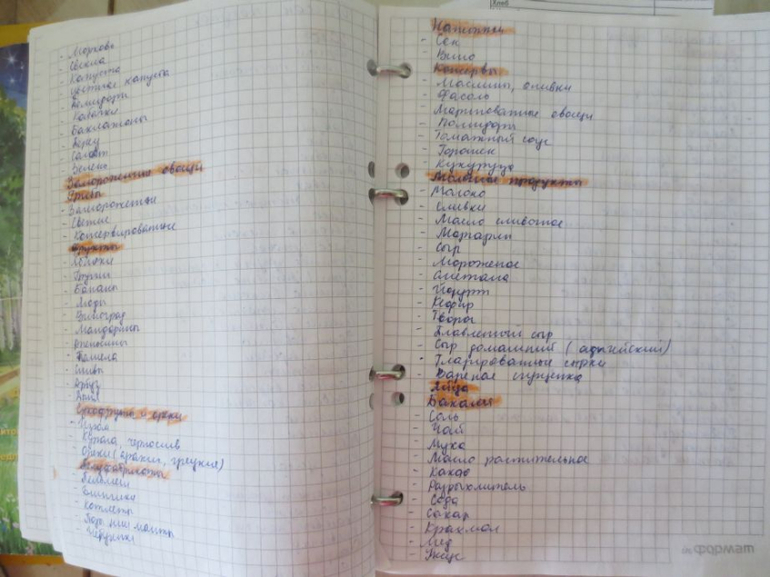 - Морковь
- Свекла
- Капуста
- Цветная капуста
- Помидоры
- Кабачки
- Баклажаны
- Салат
- Зелень
Замороженные овощи
Грибы
- Замороженные
- Свежие
- Консервированные
Фрукты
- Яблоки
- Груши
- Бананы
- Виноград
- Мандарины
- Апельсины
- Помело
- Сливы
- Арбуз
- Дыня
Сухофрукты и орехи
- Изюм
- Курага, чернослив
- Орехи (арахис, грецкие)
Полуфабрикаты
- Пельмени
- Блинчики
- Котлеты
Напитки
- Сок
- Вино
Консервы
- Маслины, оливки
- Фасоль
- Маринованные овощи
- Помидоры
- Томатный соус
- Горошек
- Кукуруза
Молочные продукты
- Молоко
- Сливки
- Масло сливочное
- Маргарин
- Сыр
- Мороженое
- Сметана
- Йогурт
- Кефир
- Творог
- Плавленый сыр
- Сыр домашний (адыгейский)
- Глазированные сырки
- Вареная сгущенка
Яйца
Бакалея
- Соль
- Чай
- Мука
- Масло растительное
- Какао
- Разрыхлитель
- Сода
- Сахар
- Крахмал
- Мед
- Уксус
формат